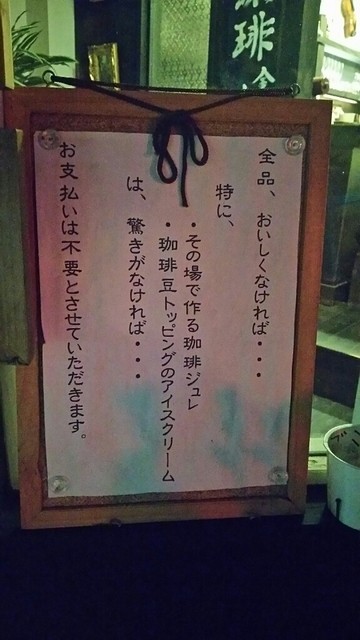 珈琲
全品、おいしくなければ・・・
特に、
・その場で作る珈琲ジュレ
・珈琲豆トッピングのアイスクリーム
は、驚きがなければ・・・
お支払いは不要とさせていただきます。